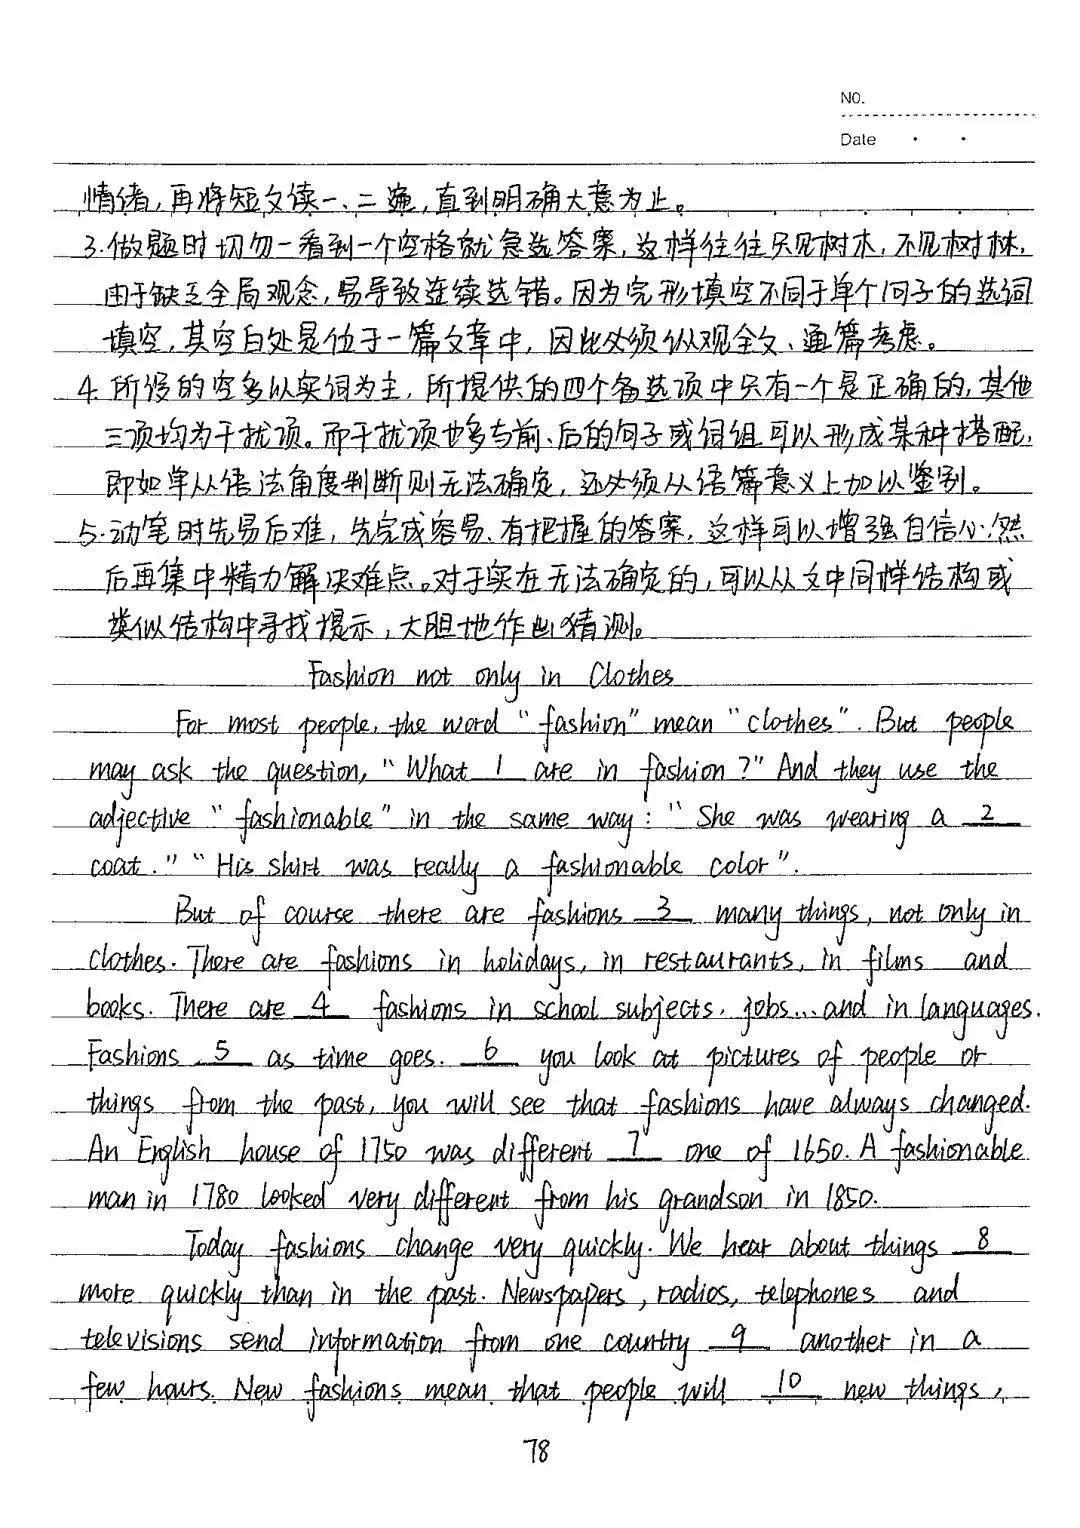 NO.
Date
情绪,再将短文读一、二遍,直到明确大意为止。
3.做题时切勿一看到一个空格就急选答案,这样往往只见树木,不见树林,
由于缺乏全局观念,易导致连续选错。因为完形填空不同于单个句子的选词
填空,其空白处是位于一篇文章中,因此必须纵观全文、通篇考虑。
4.所设的空多以实词为主,所提供的四个备选项中只有一个是正确的,其他
三项均为干扰项。而干扰项也多与前、后的句子或词组可以形成某种搭配,
即如单从语法角度判断则无法确定,还必须从语篇意义上加以鉴别。
5.动笔时先易后难,先完成容易、有把握的答案,这样可以增强自信心;然
后再集中精力解决难点。对于实在无法确定的,可以从文中同样结构或
类似结构中寻找提示,大胆地作出猜测。
Fashion not only in Clothes
For most people, the word "fashion" mean "clothes". But people
may ask the question, "What 1 are in fashion?" And they use the
adjective "fashionable" in the same way: "She was wearing a 2
coat." "His shirt was really a fashionable color".
But of course there are fashions 3 many things, not only in
clothes. There are fashions in holidays, in restaurants, in films and
books. There are 4 fashions in school subjects, jobs...and in languages.
Fashions 5 as time goes. 6 you look at pictures of people or
things from the past, you will see that fashions have always changed.
An English house of 1750 was different 7 one of 1650. A fashionable
man in 1780 looked very different from his grandson in 1850.
Today fashions change very quickly. We hear about things 8
more quickly than in the past. Newspapers, radios, telephones and
televisions send information from one country 9 another in a
few hours. New fashions mean that people will 10 new things,
78